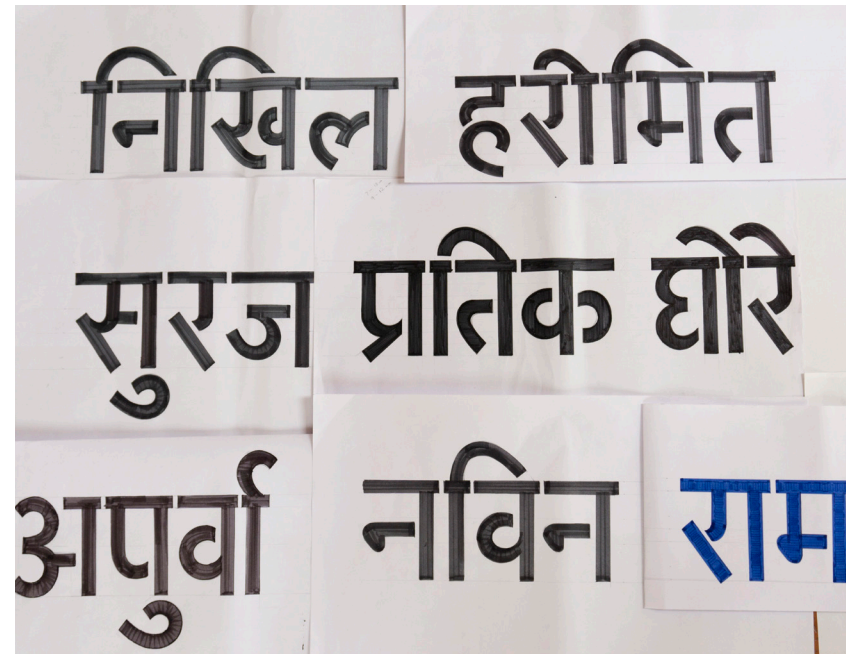 निखिल
हरीमित
सुरज
प्रतिक घोरे
अपुर्वा
नविन
राम